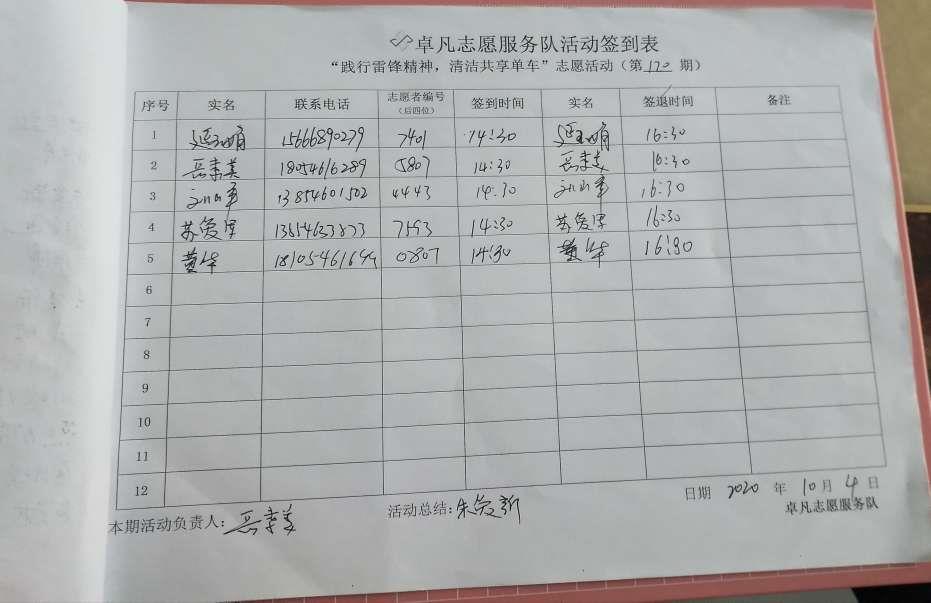 卓凡志愿服务队活动签到表
“践行雷锋精神，清洁共享单车”志愿活动（第120期）
序号 实名 联系电话 志愿者编号（后四位） 签到时间 实名 签退时间 备注
1 15666890279 7401 14:30 16:30
2 岳素美 18054616289 5807 14:30 岳素美 16:30
3 13854601502 4443 14:30 16:30
4 苏爱泽 7593 14:30 苏爱泽 16:30
5 黄华 18105461699 0807 14:30 黄华 16:30
6
7
8
9
10
11
12
日期 2020 年 10月 4 日
本期活动负责人：岳素美 活动总结：朱爱新
卓凡志愿服务队